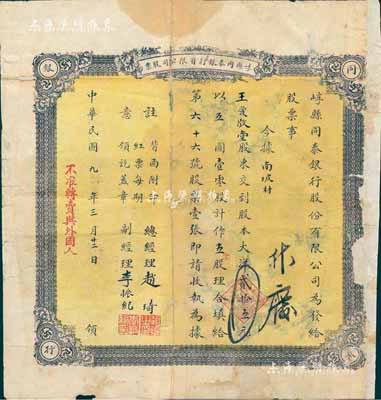 崞縣同泰銀行有限公司股票
同
股
泰
行
崞縣同泰銀行股份有限公司為發給
股票事
今據南坡村
王愛敬堂股東交到股本大洋貳拾五元
以五圓壹零股計作五股理合填給
第六十六號股票壹張即請收執為據
註 背面附印
意 紅票每期
領訖蓋章
總經理 趙琦
副經理 李振紀
中華民國九年三月廿二日 領
不准轉賣與外國人
作廢